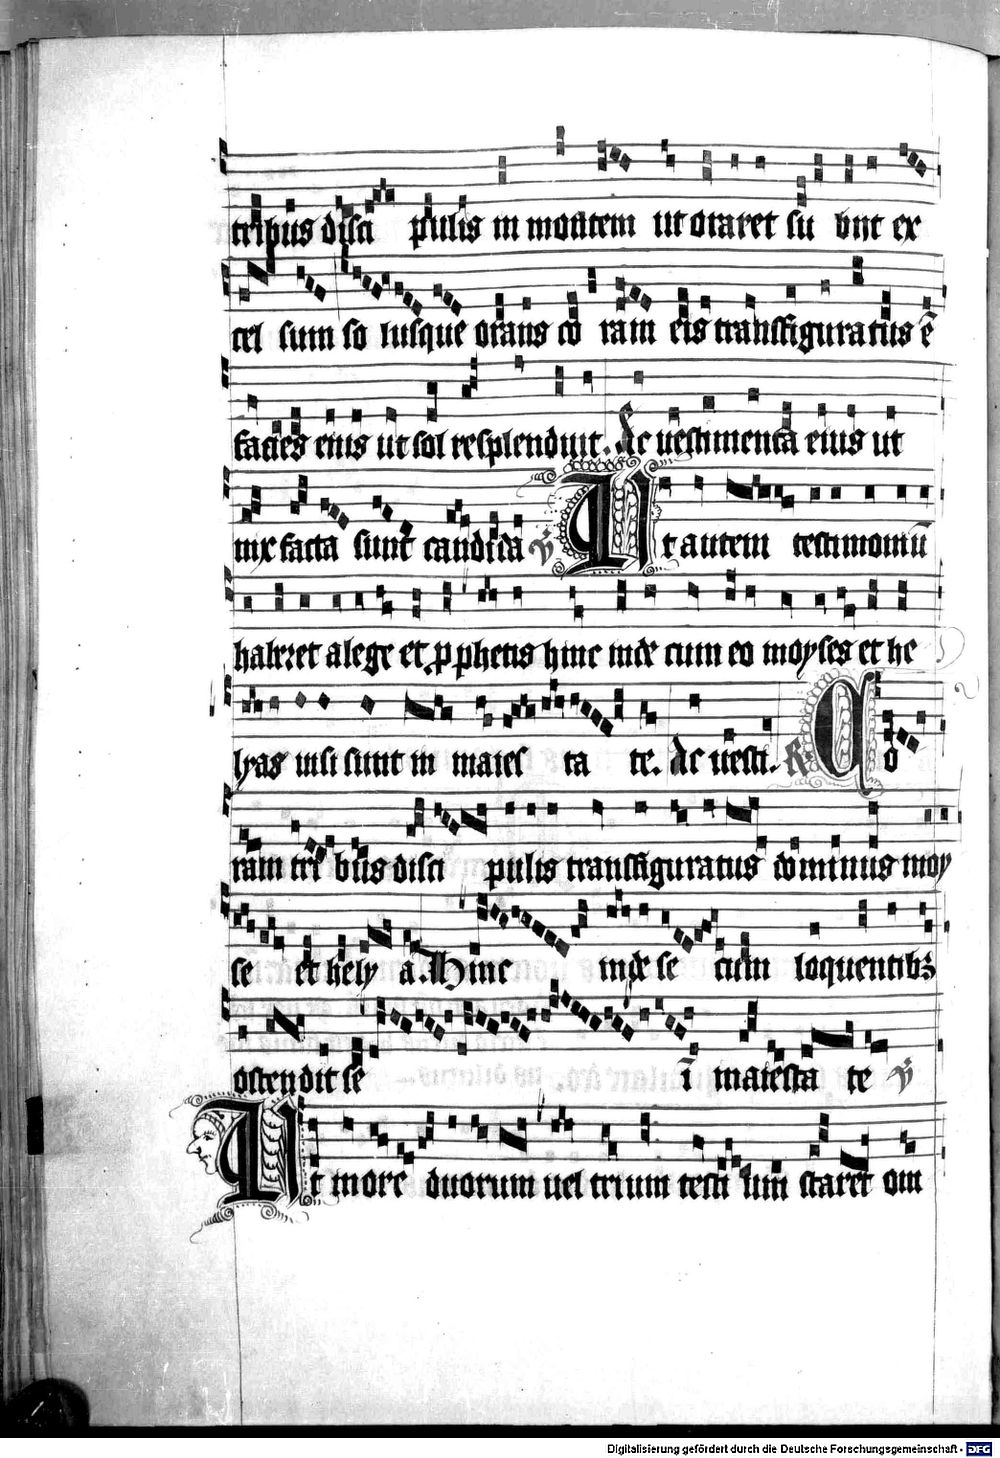 tribus disci pulis in montem ut oraret su bijt ex
cel sum so lusque orans co ram eis transfiguratus ē
facies eius ut sol resplenduit. Ac uestimenta eius ut
nix facta sunt candida ℣ Ut autem testimoniū
haberet a lege et p̱ phetis hinc inde cum eo moyses et he
lyas uisi sunt in maies ta te. Ac uesti. ℟. Co
ram tri bus disci pulis transfiguratus dominus moy
se et hely a. Hinc inde se cum loquentibꝫ
ostendit se ī maiesta te ℣
Ut more duorum uel trium testi um staret om
Digitalisierung gefördert durch die Deutsche Forschungsgemeinschaft - DFG